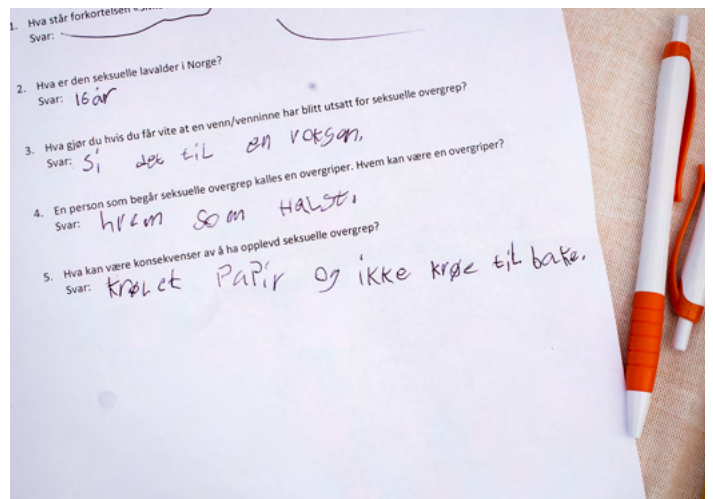 1. Hva står forkortelsen
Svar:
2. Hva er den seksuelle lavalder i Norge?
Svar: 16 år
3. Hva gjør du hvis du får vite at en venn/venninne har blitt utsatt for seksuelle overgrep?
Svar: Si det til en voksen.
4. En person som begår seksuelle overgrep kalles en overgriper. Hvem kan være en overgriper?
Svar: hvem som Halst.
5. Hva kan være konsekvenser av å ha opplevd seksuelle overgrep?
Svar: krølet PaPir og ikke krøe til bake.